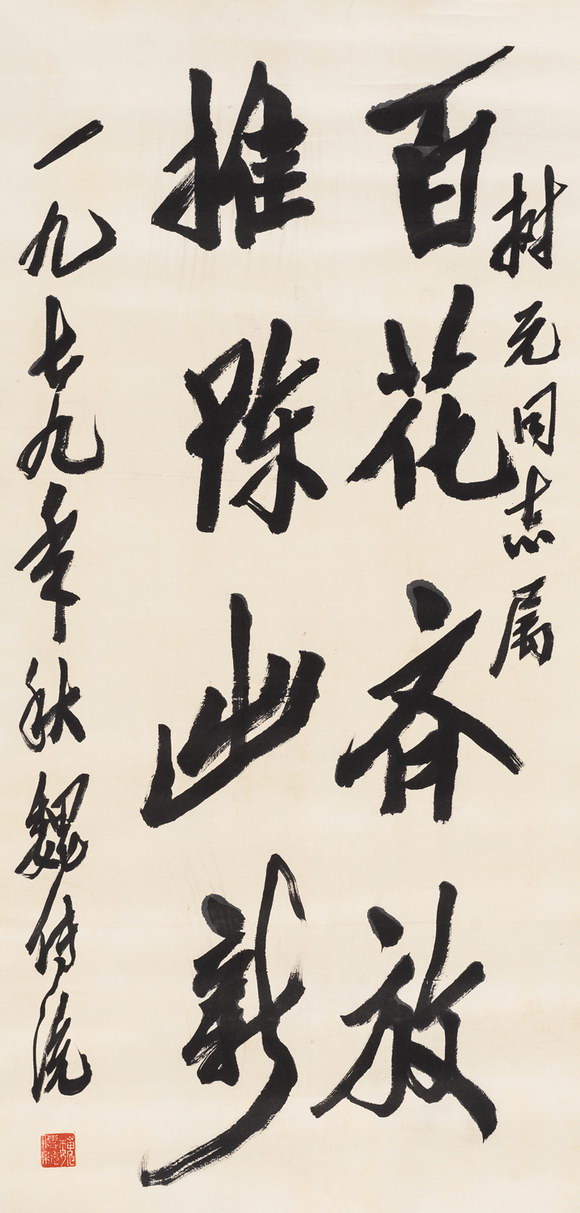 树元同志属
百花齐放
推陈出新
一九七九年秋魏传统